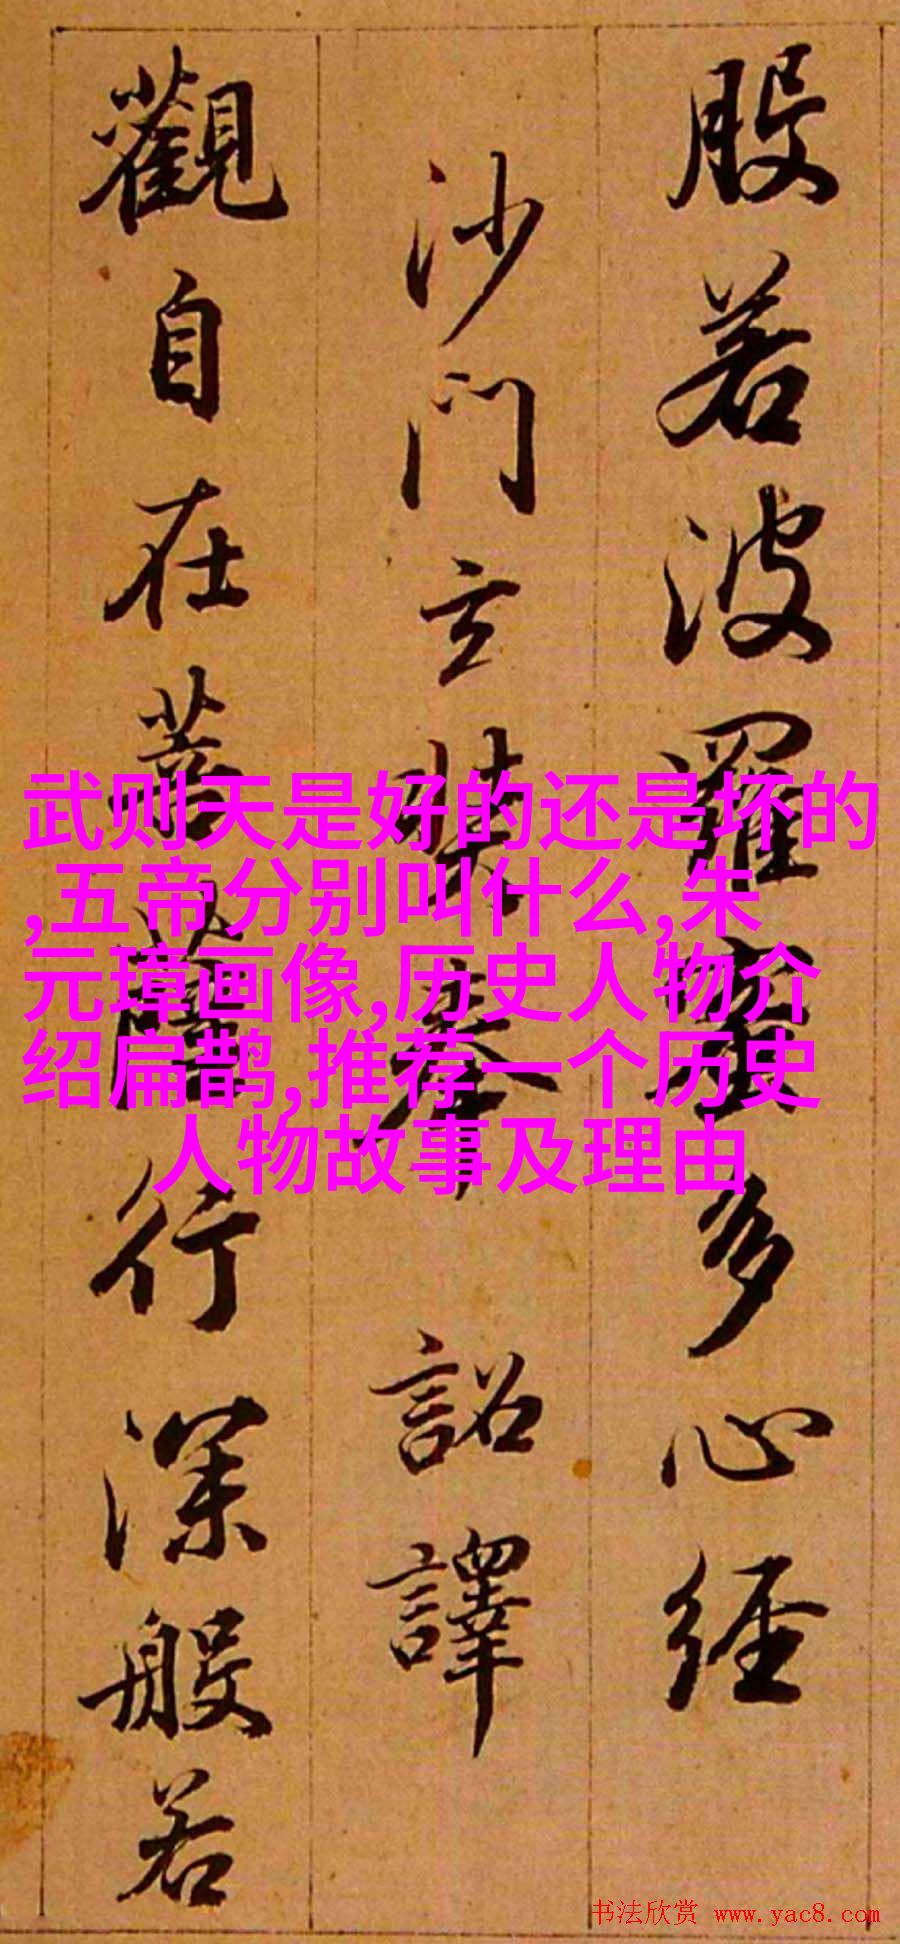 般若波羅蜜多心經
沙門玄奘奉 詔譯
觀自在菩薩行深般若
武则天是好的还是坏的
,五帝分别叫什么,朱
元璋画像,历史人物介
绍扁鹊,推荐一个历史
人物故事及理由
书法欣赏 www.yac8.com